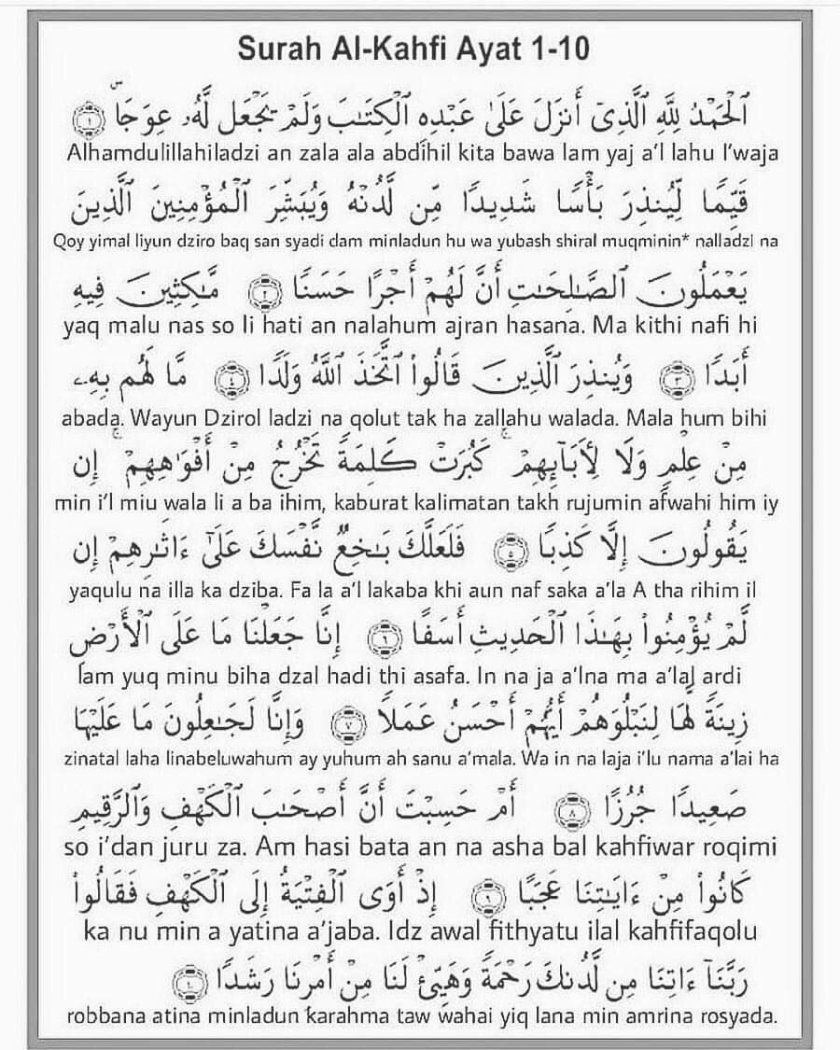 Surah Al-Kahfi Ayat 1-10
ٱلۡحَمۡدُ لِلَّهِ ٱلَّذِيٓ أَنزَلَ عَلَىٰ عَبۡدِهِ ٱلۡكِتَٰبَ وَلَمۡ يَجۡعَل لَّهُۥ عِوَجَاۜ ١
Alhamdulillahiladzi an zala ala abdihil kita bawa lam yaj a'l lahu I'waja
قَيِّمٗا لِّيُنذِرَ بَأۡسٗا شَدِيدٗا مِّن لَّدُنۡهُ وَيُبَشِّرَ ٱلۡمُؤۡمِنِينَ ٱلَّذِينَ
Qoy yimal liyun dziro baq san syadi dam minladun hu wa yubash shiral muqminin* nalladzi na
يَعۡمَلُونَ ٱلصَّٰلِحَٰتِ أَنَّ لَهُمۡ أَجۡرًا حَسَنٗا ٢ مَّٰكِثِينَ فِيهِ
yaq malu nas so li hati an nalahum ajran hasana. Ma kithi nafi hi
أَبَدٗا ٣ وَيُنذِرَ ٱلَّذِينَ قَالُواْ ٱتَّخَذَ ٱللَّهُ وَلَدٗا ٤ مَّا لَهُم بِهِۦ
abada. Wayun Dzirol ladzi na qolut tak ha zallahu walada. Mala hum bihi
مِنۡ عِلۡمٖ وَلَا لِأٓبَآئِهِمۡۚ كَبُرَتۡ كَلِمَةٗ تَخۡرُجُ مِنۡ أَفۡوَٰهِهِمۡۚ إِن
min i'l miu wala li a ba ihim, kaburat kalimatan takh rujumin afwahi him iy
يَقُولُونَ إِلَّا كَذِبٗا ٥ فَلَعَلَّكَ بَٰخِعٞ نَّفۡسَكَ عَلَىٰٓ ءَاثَٰرِهِمۡ إِن
yaqulu na illa ka dziba. Fa la a'l lakaba khi aun naf saka a'la A tha rihim il
لَّمۡ يُؤۡمِنُواْ بِهَٰذَا ٱلۡحَدِيثِ أَسَفًا ٦ إِنَّا جَعَلۡنَا مَا عَلَى ٱلۡأَرۡضِ
lam yuq minu biha dzal hadi thi asafa. In na ja a'lna ma a'lal ardi
زِينَةٗ لَّهَا لِنَبۡلُوَهُمۡ أَيُّهُمۡ أَحۡسَنُ عَمَلٗا ٧ وَإِنَّا لَجَٰعِلُونَ مَا عَلَيۡهَا
zinatal laha linabeluwahum ay yuhum ah sanu a'mala. Wa in na laja i'lu nama a'lai ha
صَعِيدٗا جُرُزًا ٨ أَمۡ حَسِبۡتَ أَنَّ أَصۡحَٰبَ ٱلۡكَهۡفِ وَٱلرَّقِيمِ
so i'dan juru za. Am hasi bata an na asha bal kahfiwar roqimi
كَانُواْ مِنۡ ءَايَٰتِنَا عَجَبًا ٩ إِذۡ أَوَى ٱلۡفِتۡيَةُ إِلَى ٱلۡكَهۡفِ فَقَالُواْ
ka nu min a yatina a'jaba. Idz awal fithyatu ilal kahfifaqolu
رَبَّنَآ ءَاتِنَا مِن لَّدُنكَ رَحۡمَةٗ وَهَيِّئۡ لَنَا مِنۡ أَمۡرِنَا رَشَدٗا ١٠
robbana atina minladun karahma taw wahai yiq lana min amrina rosyada.